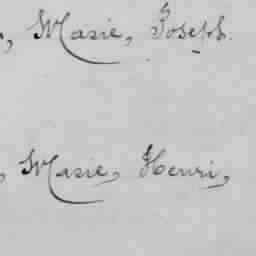 , Marie, Joseph.
, Marie, Henri,